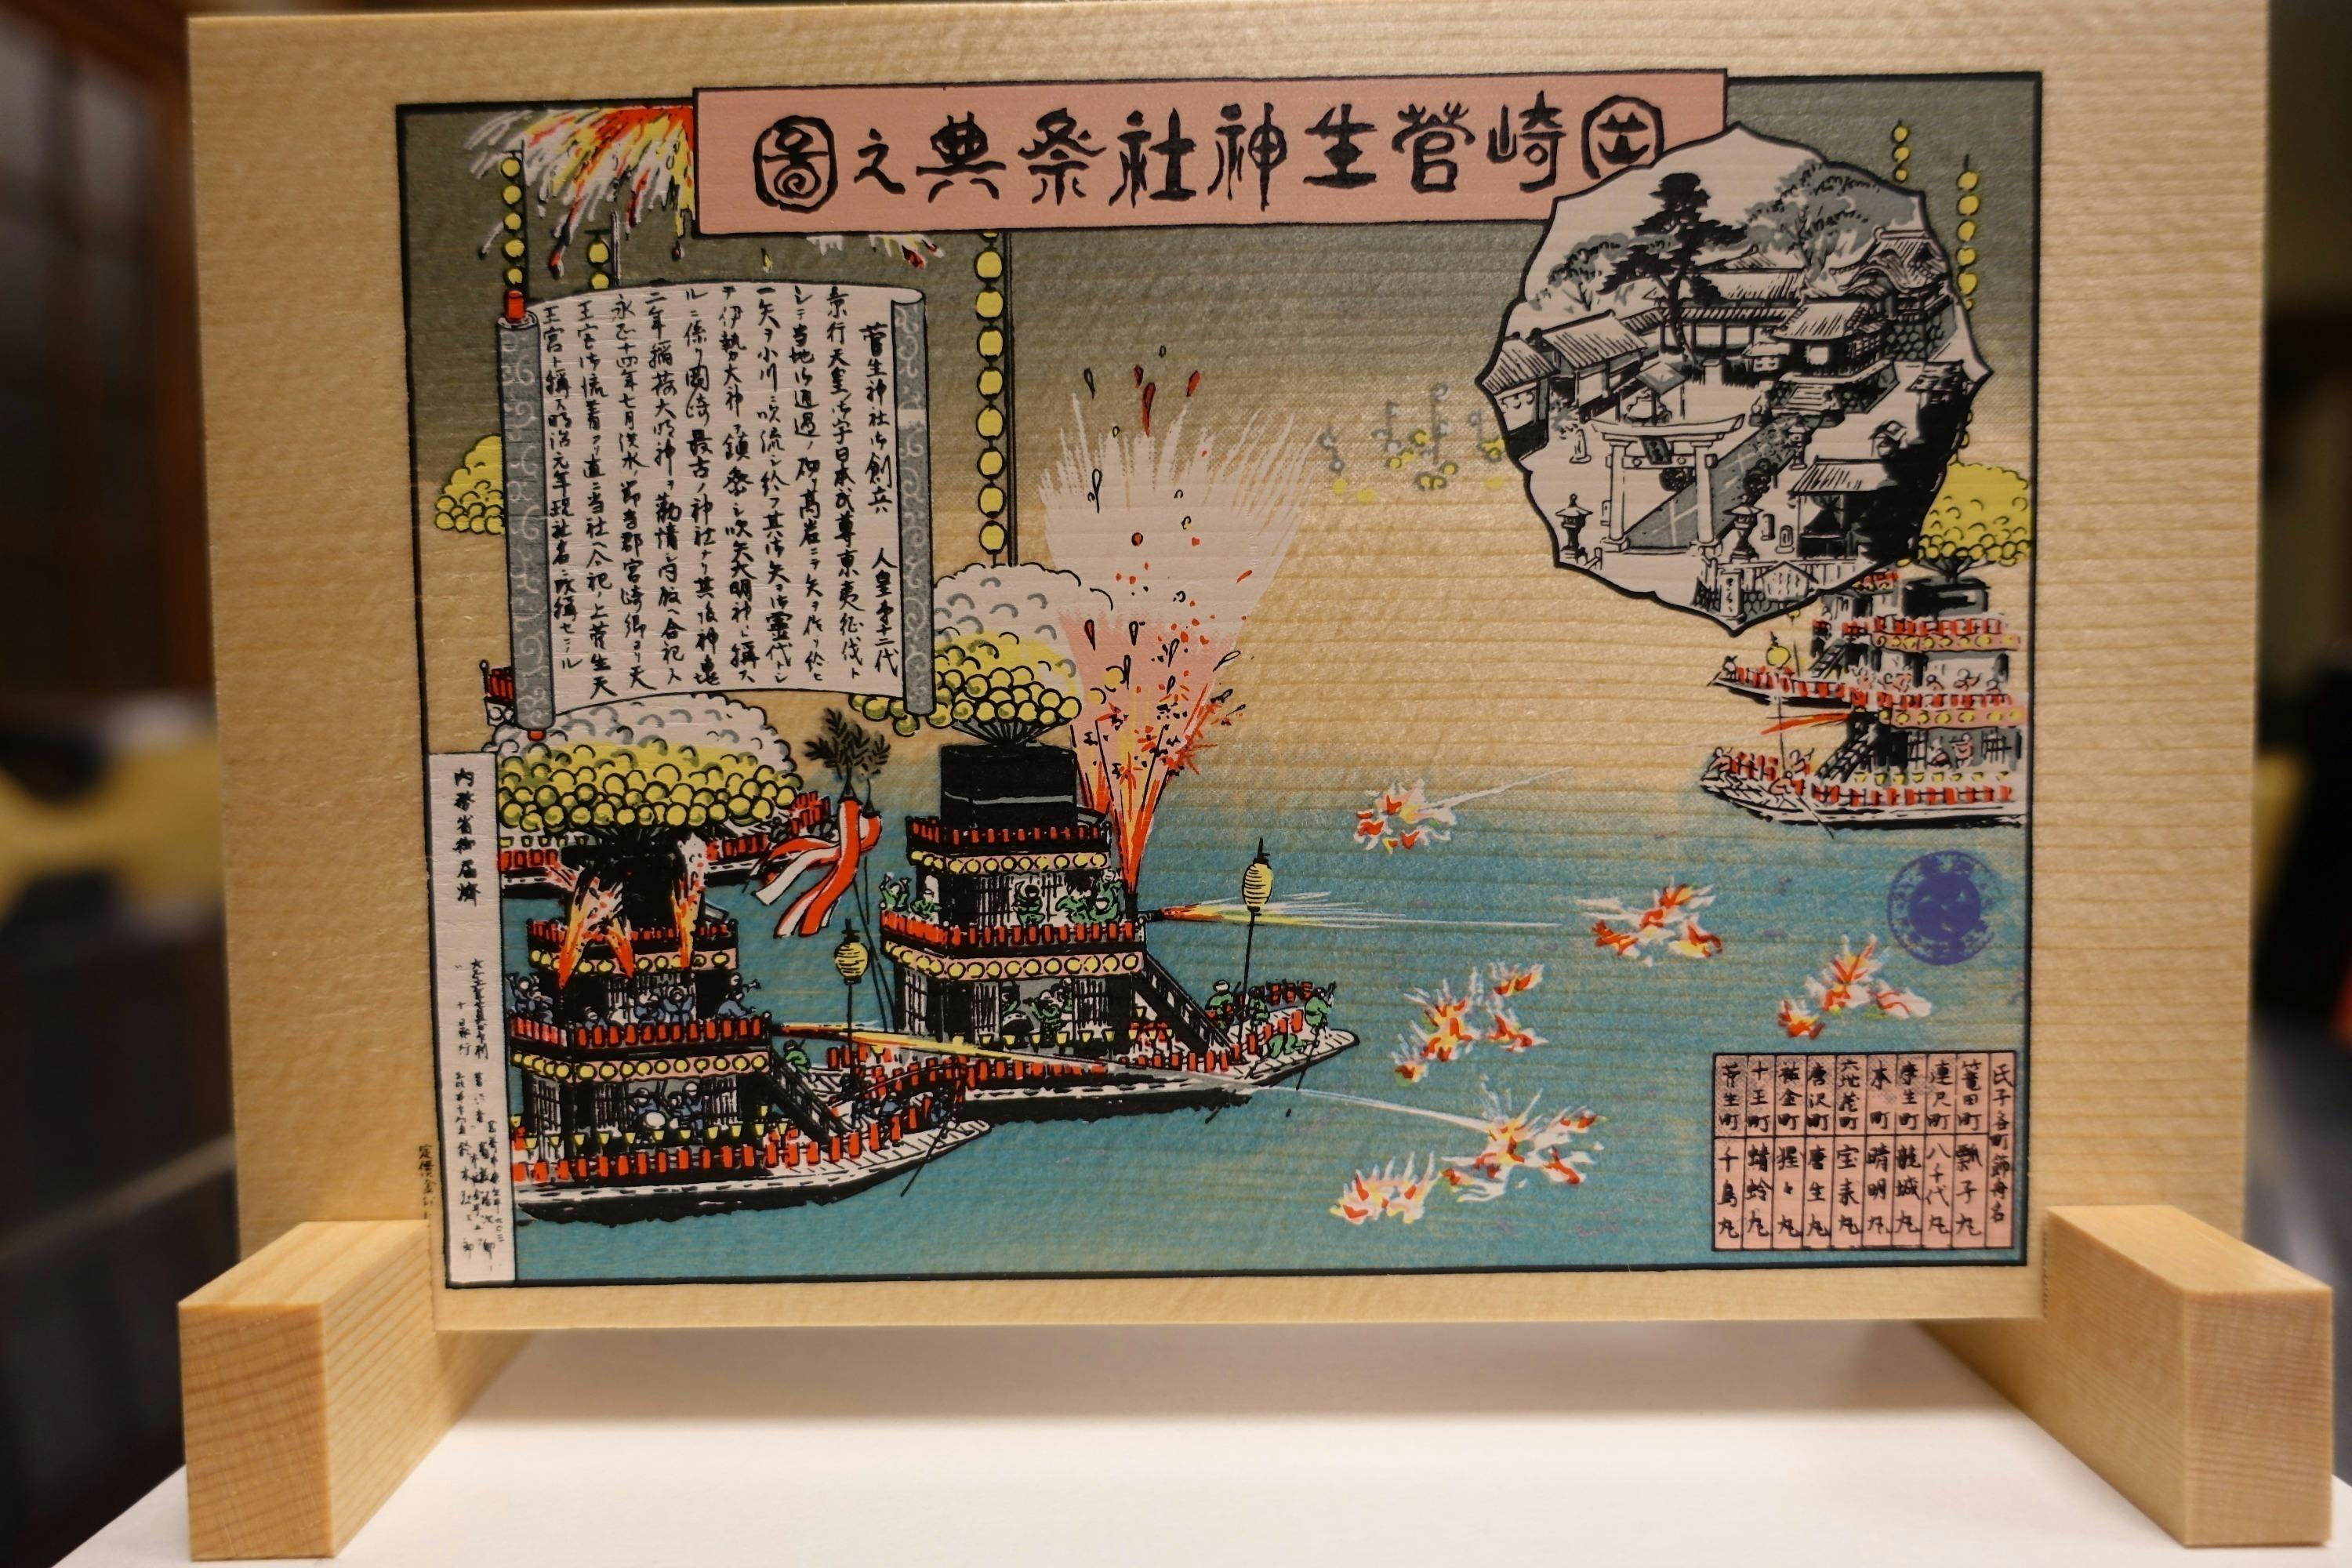 岡崎菅生神社祭典之圖
菅生神社御創立ハ 人皇第十二代
景行天皇ノ御宇日本武尊東夷征伐ト
シテ当地御通過ノ砌リ高岩ニテ矢ヲ作リ給ヒ
一矢ヲ小川ニ吹流シ給フ其御矢ヲ御霊代トシ
テ伊勢大神ヲ鎮祭シ吹矢大明神ト稱ス
ルニ係リ岡崎最古ノ神社ナリ其後神亀
二年稲荷大明神ヲ勧請シ内殿ヘ合祀ス
永正十四年七月洪水ノ節当郡宮崎郷ヨリ天
王宮御流着アリ直ニ当社ヘ合祀ノ上菅生天
王宮ト稱ス明治元年現社名ニ改稱セラル
内務省御届済
氏子各町鉾舟名
篭田町 瓢子丸
連尺町 八千代丸
康生町 龍城丸
本町 晴明丸
六地蔵町 宝来丸
唐沢町 唐生丸
祐金町 猩々丸
十王町 蜻蛉丸
菅生町 千鳥丸